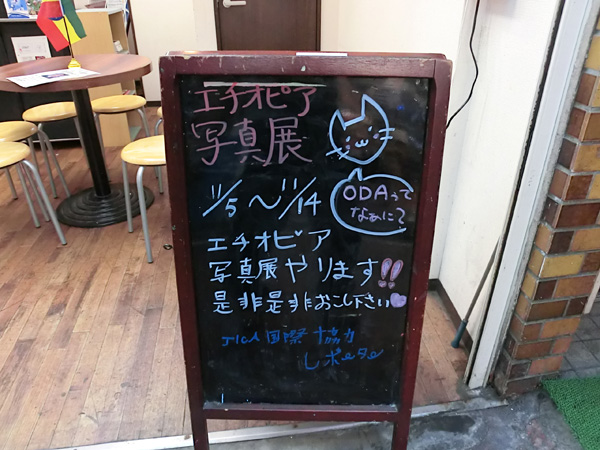 エチオピア
写真展
11/5〜11/14
ODAって
なぁに?
エチオピア
写真展やります!!
是非是非おこし下さい
JICA国際協力
レポーター